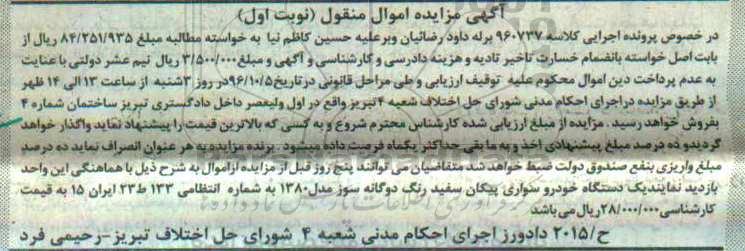 آگهی مزایده اموال منقول (نوبت اول)
در خصوص پرونده اجرایی کلاسه ۹۶۰۷۳۷ برله داود رضائیان وبرعلیه حسین کاظم نیا به خواسته مطالبه مبلغ ۸۴/۲۵۱/۹۳۵ ریال از
بابت اصل خواسته بانضمام خسارت تاخیر تادیه و هزینه دادرسی و کارشناسی و آگهی و مبلغ ۳/۵۰۰/۰۰۰ ریال نیم عشر دولتی با عنایت
به عدم پرداخت دین اموال محکوم علیه توقیف ارزیابی و طی مراحل قانونی در تاریخ ۹۶/۱۰/۵ در روز ۳شنبه از ساعت ۱۳ الی ۱۴ ظهر
از طریق مزایده در اجرای احکام مدنی شورای حل اختلاف شعبه ۴ تبریز واقع در اول ولیعصر داخل دادگستری تبریز ساختمان شماره ۴
بفروش خواهد رسید. مزایده از مبلغ ارزیابی شده کارشناس محترم شروع و به کسی که بالاترین قیمت را پیشنهاد نماید واگذار خواهد
گردید و ده درصد مبلغ پیشنهادی اخذ و به مابقی حداکثر یکماه فرصت داده میشود. برنده مزایده به هر عنوان انصراف نماید ده درصد
مبلغ واریزی بنفع صندوق دولت ضبط خواهد شد متقاضیان می توانند پنج روز قبل از مزایده از اموال به شرح ذیل با هماهنگی این واحد
بازدید نمایند یک دستگاه خودرو سواری پیکان سفید رنگ دوگانه سوز مدل ۱۳۸۰ به شماره انتظامی ۱۳۳ ط ۲۳ ایران ۱۵ به قیمت
کارشناسی ۲۸/۰۰۰/۰۰۰ ریال می باشد
ح/۲۰۱۵ دادورز اجرای احکام مدنی شعبه ۴ شورای حل اختلاف تبریز-رحیمی فرد